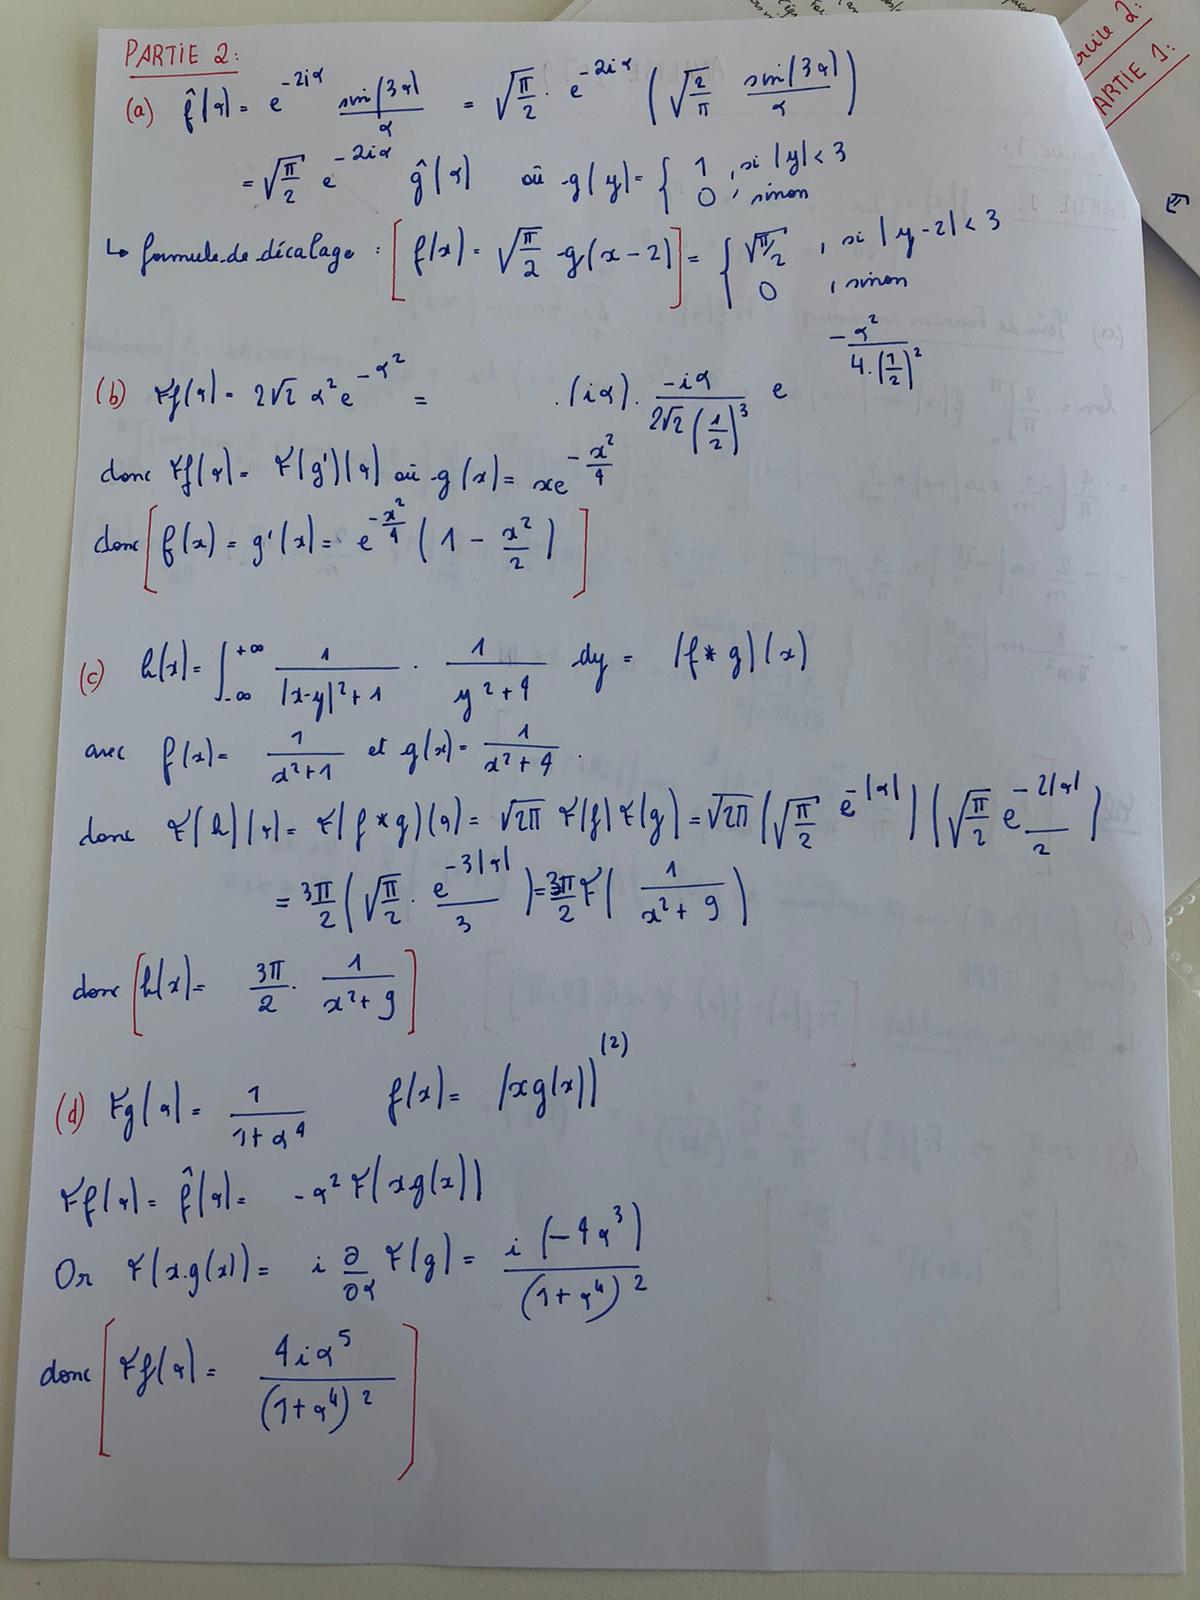 PARTIE 2:
(a) f̂(α) = e^{-2iα} sin(3α)/α = √(π/2) · e^{-2iα} (√(2/π) sin(3α)/α)
= √(π/2) e^{-2iα} ĝ(α) où g(y) = { 1, si |y| < 3
0, sinon
↳ formule de décalage : [f(x) = √(π/2) g(x-2)] = { √(π/2), si |y-2| < 3
0, sinon
(b) Ff(α) = 2√2 α² e^{-α²} = . (iα) · -iα/(2√2 (1/2)³) e^{-α²/(4·(1/2)²)}
donc Ff(α) = F(g')(α) où g(x) = xe^{-x²/4}
donc [f(x) = g'(x) = e^{-x²/4} (1 - x²/2)]
(c) h(x) = ∫_{-∞}^{+∞} 1/((x-y)²+1) · 1/(y²+4) dy = (f*g)(x)
avec f(x) = 1/(x²+1) et g(x) = 1/(x²+4).
donc F(h)(α) = F(f*g)(α) = √2π F(f)F(g) = √2π (√(π/2) e^{-|α|}) (√(π/2) e^{-2|α|}/2)
= 3π/2 (√(π/2) · e^{-3|α|}/3) = 3π/2 F(1/(x²+9))
donc [h(x) = 3π/2 · 1/(x²+9)]
(d) Fg(α) = 1/(1+α⁴) f(x) = (xg(x))^{(2)}
Ff(α) = f̂(α) = -α² F(xg(x))
Or F(x.g(x)) = i ∂/∂α F(g) = i(-4α³)/(1+α⁴)²
donc [Ff(α) = 4iα⁵/(1+α⁴)²]
2:
PARTIE 1: